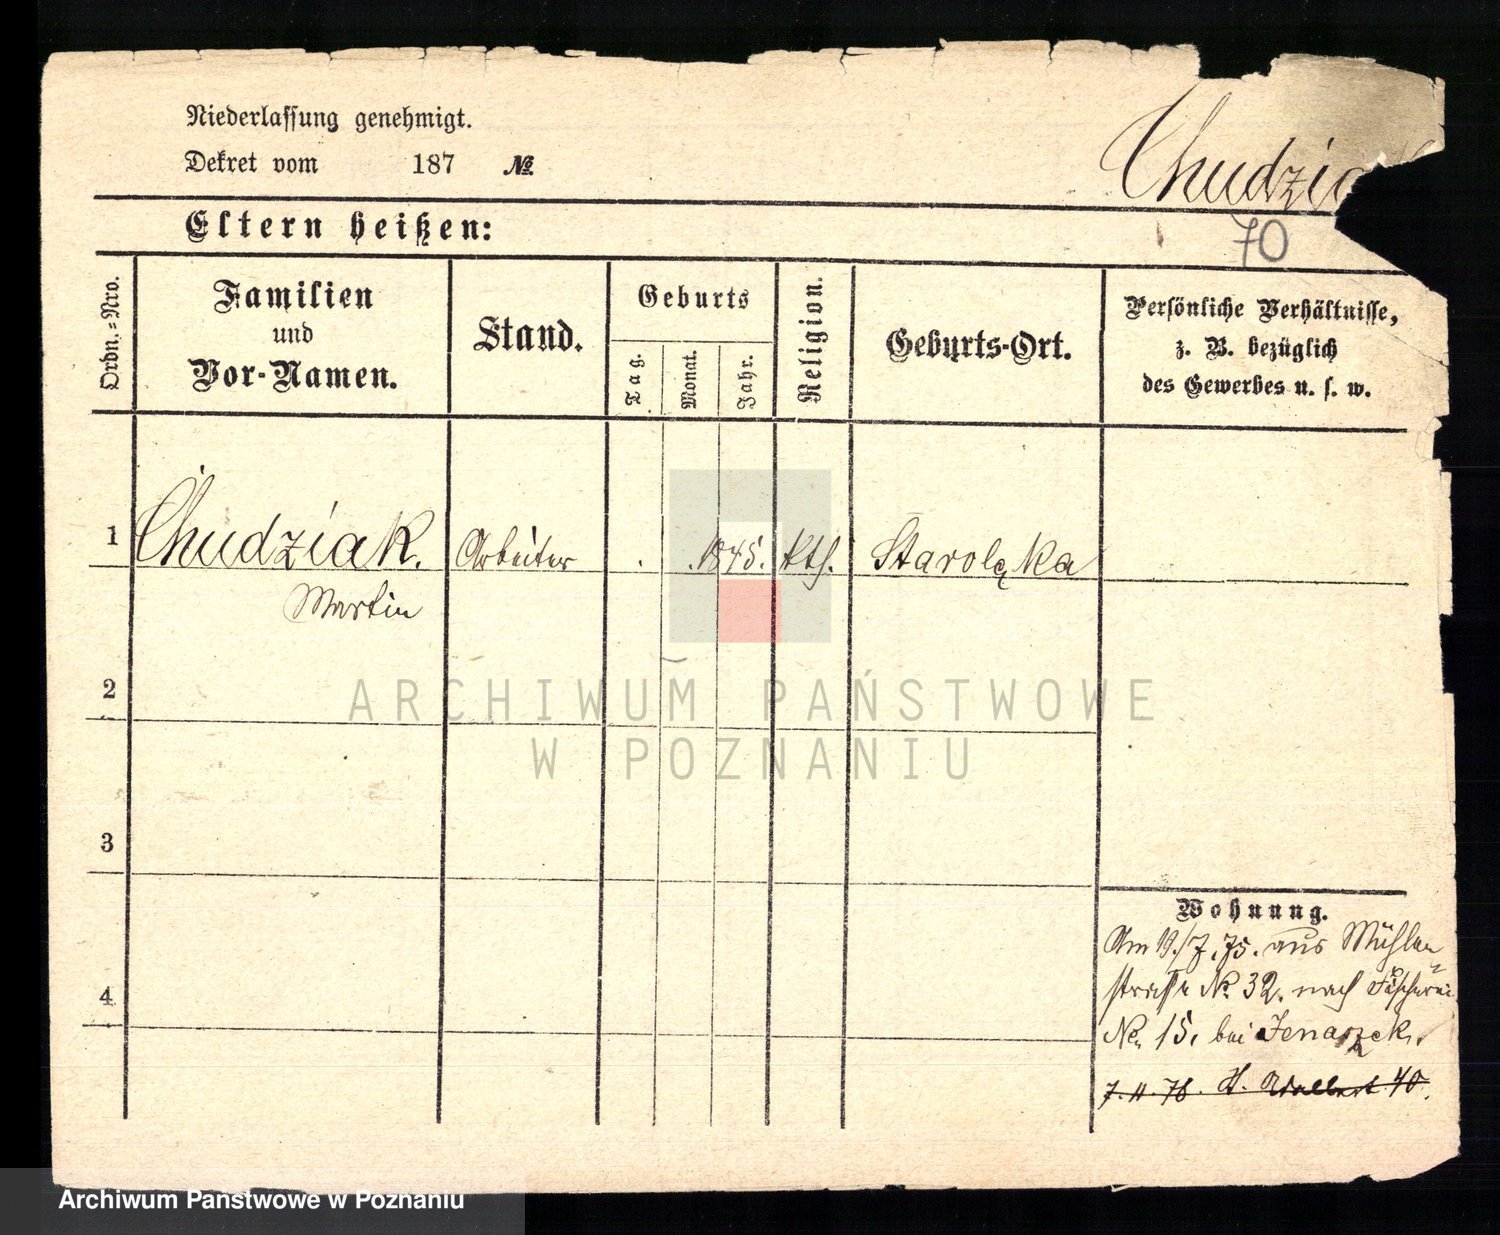 Niederlassung genehmigt.
Dekret vom 187 №
Chudzia
70
Eltern heißen:
Ordn.=Nro.
Familien
und
Vor-Namen.
Stand.
Geburts
Tag.
Monat.
Jahr.
Religion.
Geburts-Ort.
Persönliche Verhältnisse,
z. B. bezüglich
des Gewerbes u. s. w.
1 Chudziak. Arbeiter . . 1845. kth. Starolęka
Martin
2
ARCHIWUM PAŃSTWOWE
W POZNANIU
3
4
Wohnung.
Am 19./7.75. aus Mühlen
straße No. 32. nach Fischerei
No. 15. bei Jenaszek.
7.11.76. St. Adalbert 40.
Archiwum Państwowe w Poznaniu